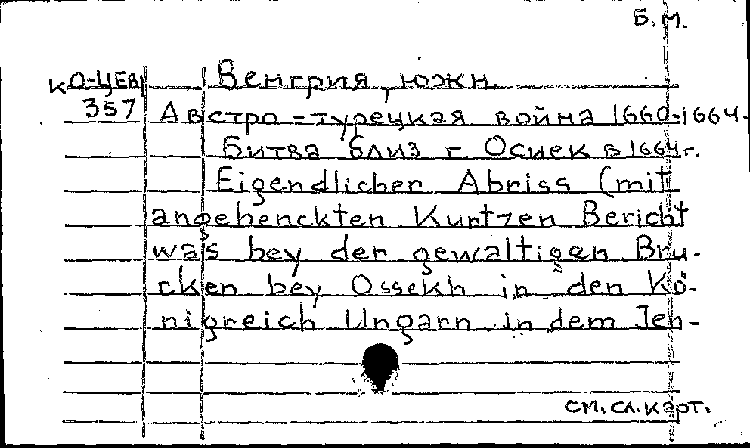 Б.М.
КО-ЦЕВ Венгрия, южн.
357 Австро-турецкая война 1660-1664.
Битва близ г. Осиек в 1664г.
Eigendlicher Abriss (mit
angehenckten Kurtzen Bericht
was bey der gewaltigen Bru-
cken bey Ossekh in den Kö-
nigreich Ungarn in dem Jeh-
см. сл. карт.